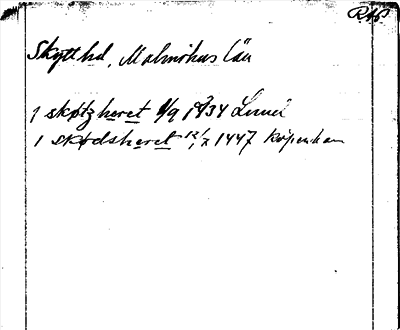 RAP
Skytt hd, Malmöhus län
i skøtzheret 8/9 1434 Lund
i skødsheret 12/1 1447 Köpenham